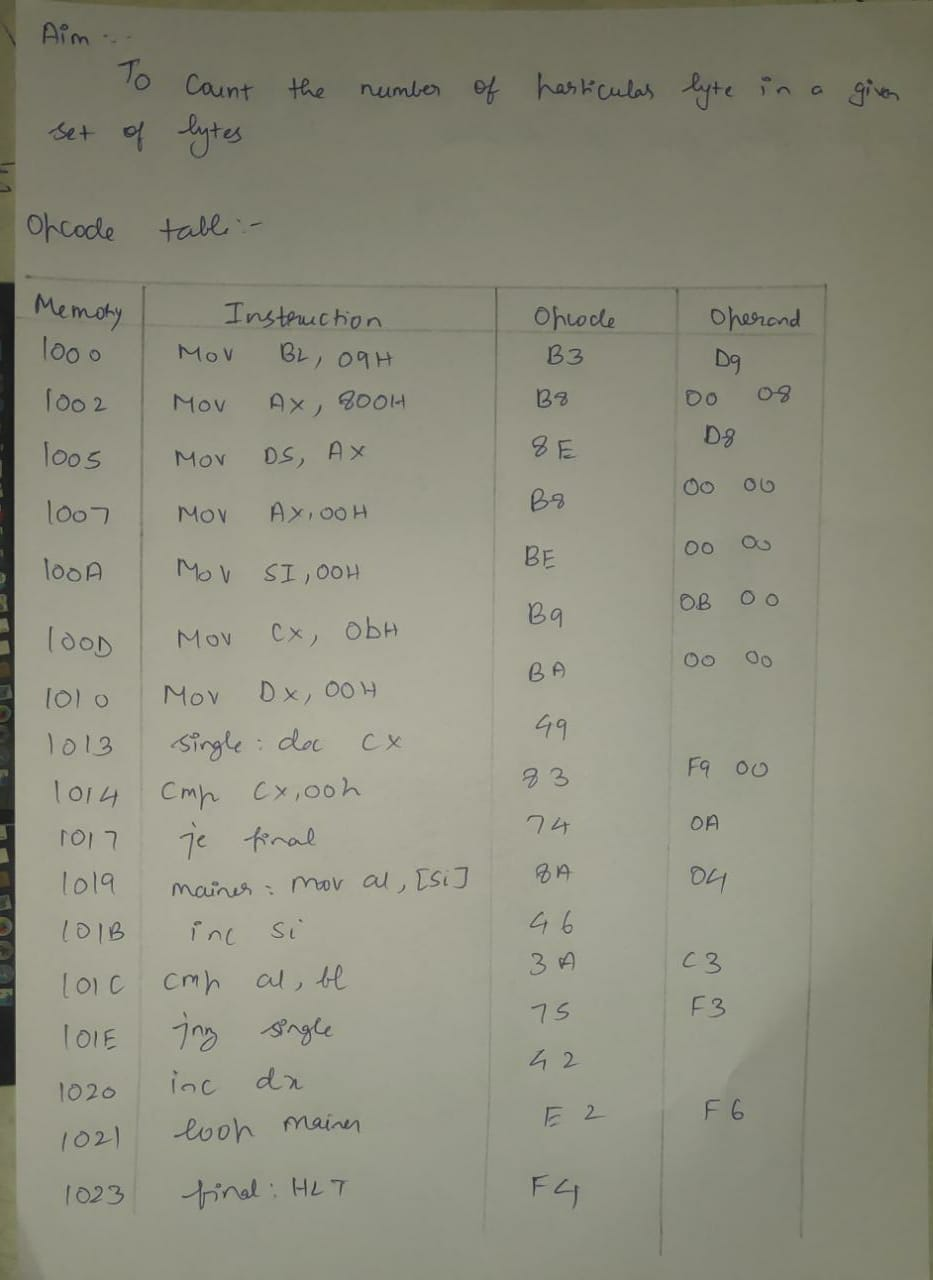 Aim :-
To Count the number of particular byte in a given
set of bytes
Opcode table:-
Memory Instruction Opcode Operand
1000 Mov BL, 09H B3 D9
1002 Mov AX, 800H B8 00 08
1005 Mov DS, AX 8E D8
1007 Mov AX, 00H B8 00 00
100A Mov SI, 00H BE 00 00
100D Mov CX, 0bH B9 0B 00
1010 Mov DX, 00H BA 00 00
1013 single: dec cx 49
1014 Cmp Cx, 00h 83 F9 00
1017 je final 74 0A
1019 mainer: mov al, [si] 8A 04
101B inc si 46
101C cmp al, bl 3A C3
101E jnz single 75 F3
1020 inc dx 42
1021 loop mainer E2 F6
1023 final: HLT F4